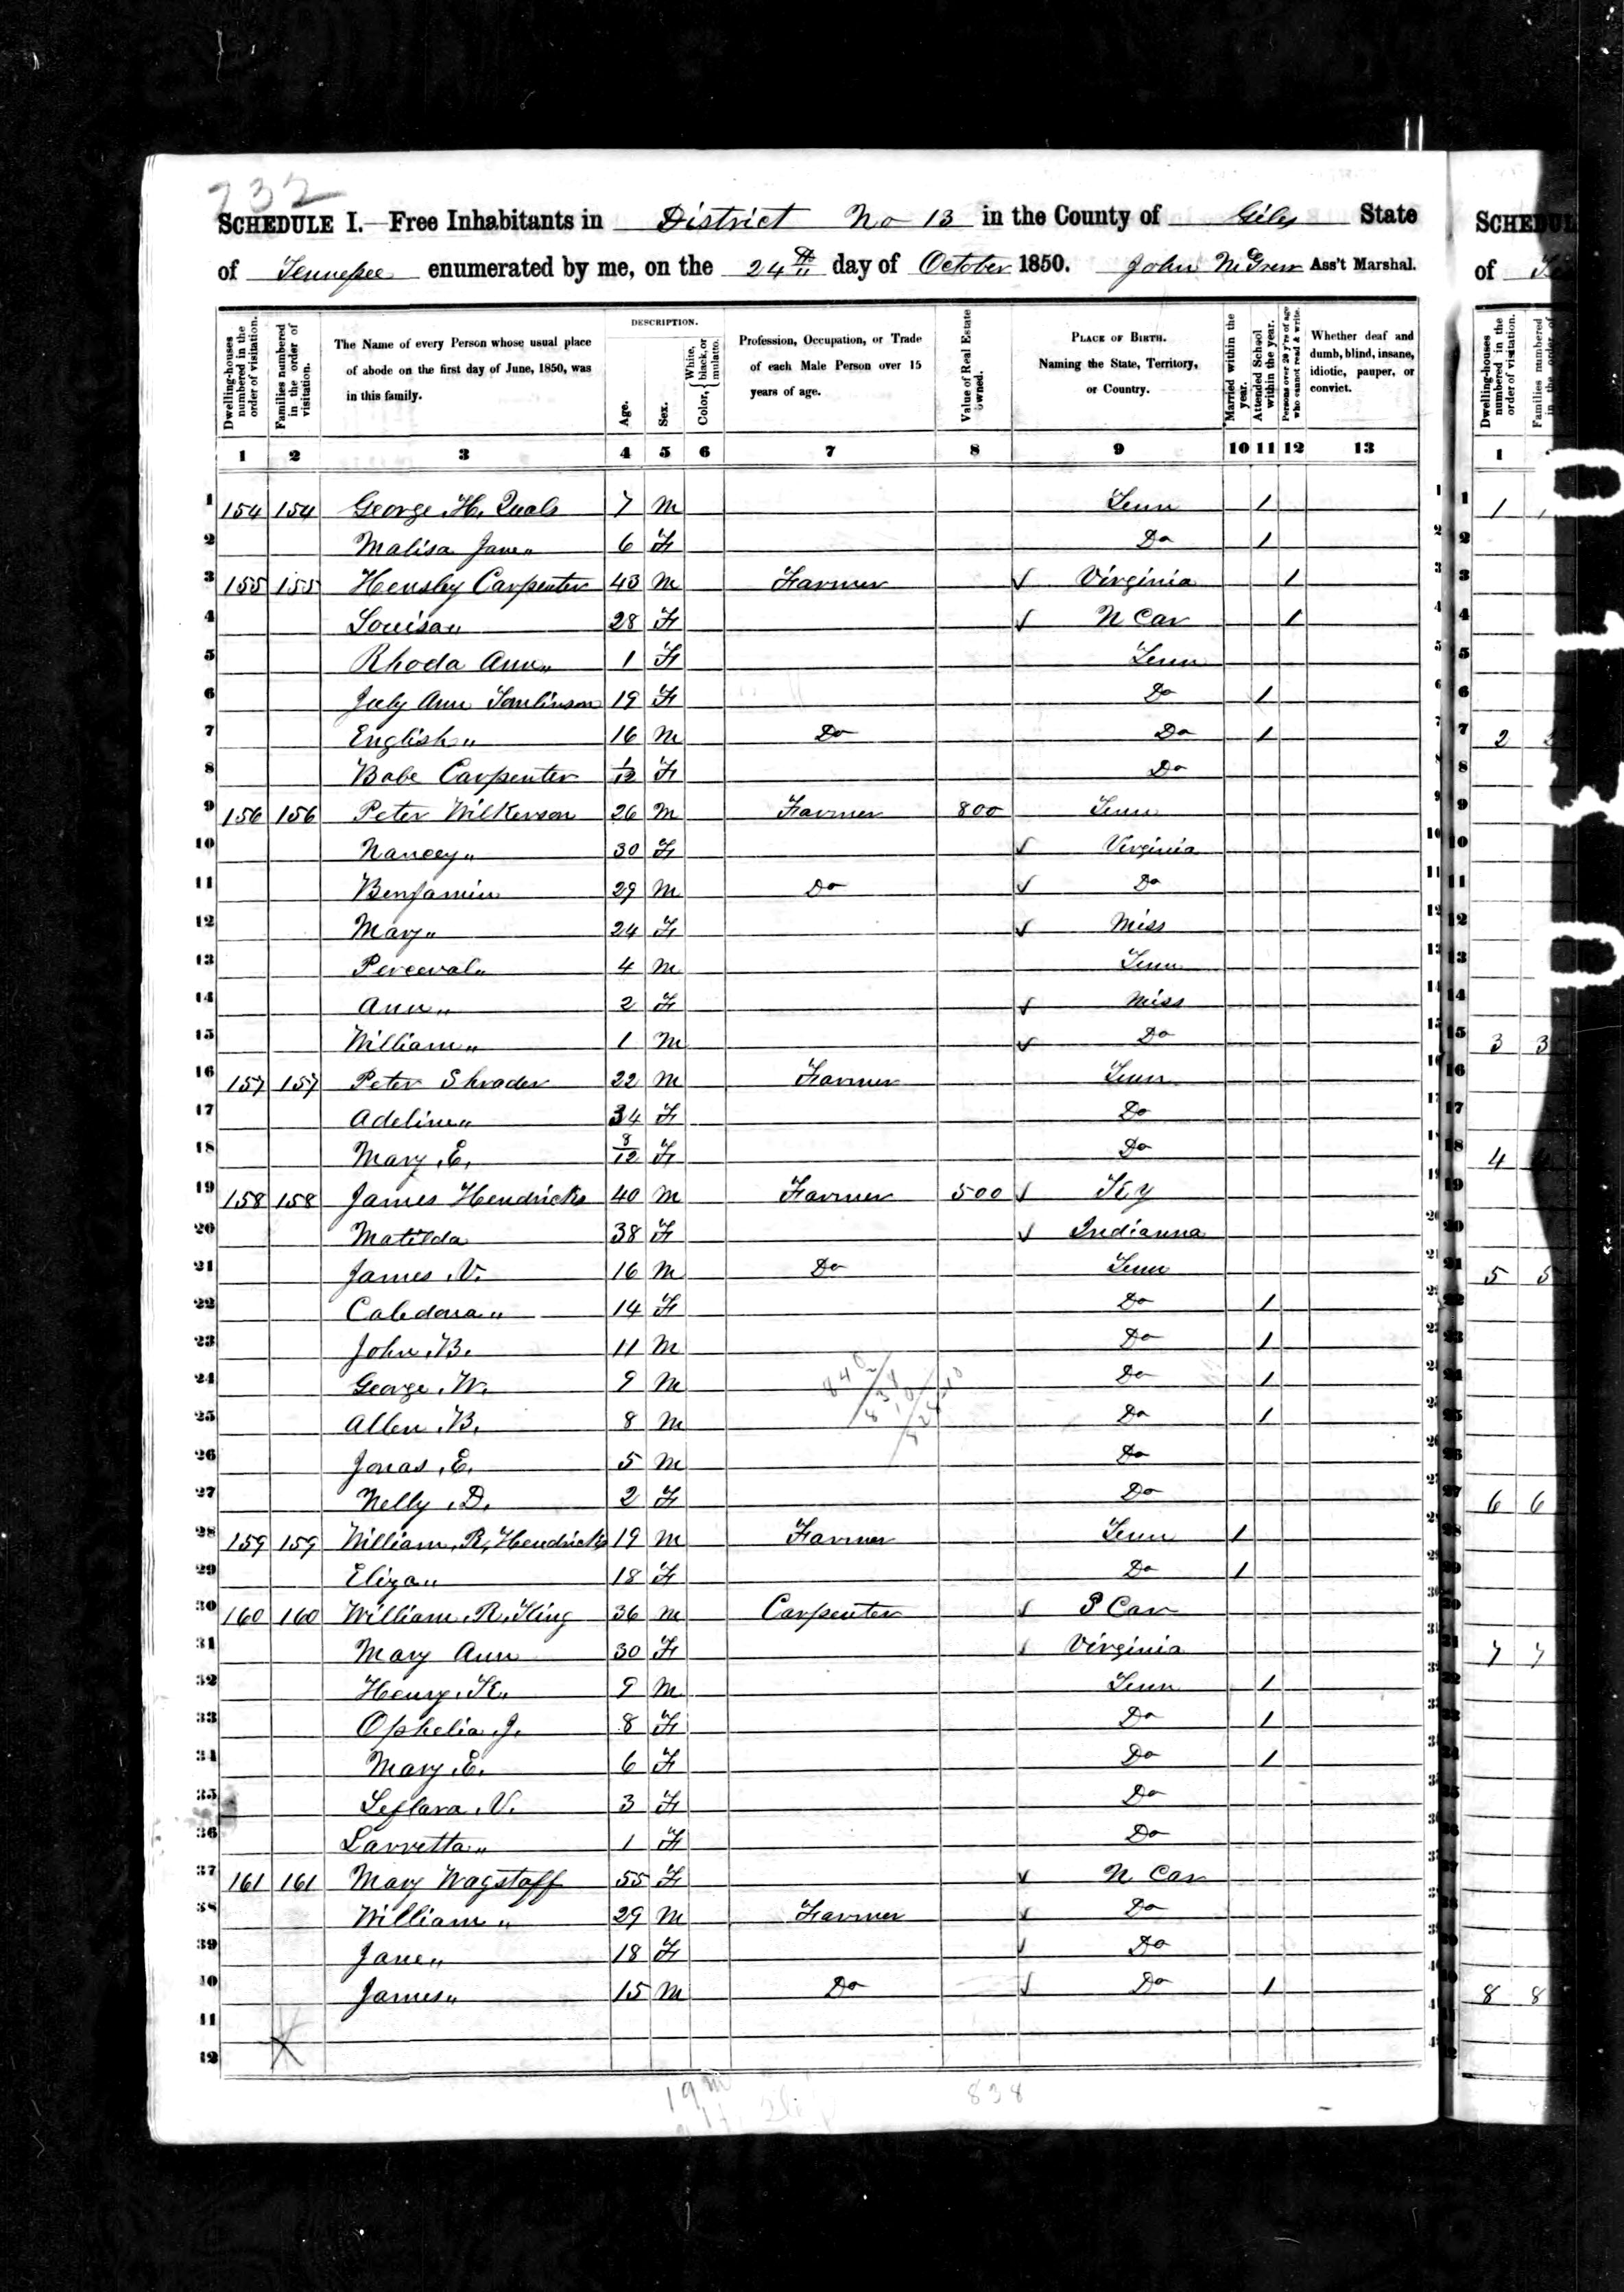 732
SCHEDULE I.—Free Inhabitants in District No 13 in the County of Giles State
of Tennessee enumerated by me, on the 24th day of October 1850. John McGrew Ass't Marshal.
Dwelling-houses numbered in the order of visitation.
Families numbered in the order of visitation.
The Name of every Person whose usual place of abode on the first day of June, 1850, was in this family.
DESCRIPTION.
Age.
Sex.
Color, { White, black, or mulatto.
Profession, Occupation, or Trade of each Male Person over 15 years of age.
Value of Real Estate owned.
PLACE OF BIRTH. Naming the State, Territory, or Country.
Married within the year.
Attended School within the year.
Persons over 20 y'rs of age who cannot read & write.
Whether deaf and dumb, blind, insane, idiotic, pauper, or convict.
1 2 3 4 5 6 7 8 9 10 11 12 13
1 154 154 George H. Quals 7 M Tenn 1
2 Malisa Jane " 6 F Do 1
3 155 155 Hensley Carpenter 43 M Farmer ✓ Virginia 1
4 Louisa " 28 F ✓ N Car 1
5 Rhoda Ann " 1 F Tenn
6 July Ann Tomlinson 19 F Do 1
7 English " 16 M Do Do 1
8 Babe Carpenter 1/12 F Do
9 156 156 Peter Wilkerson 26 M Farmer 800 Tenn
10 Nancey " 30 F ✓ Virginia
11 Benjamin 29 M Do ✓ Do
12 Mary " 24 F ✓ Miss
13 Perceval " 4 M Tenn
14 Ann " 2 F ✓ Miss
15 William " 1 M ✓ Do
16 157 157 Peter Shrader 22 M Farmer Tenn
17 Adeline " 34 F Do
18 Mary E. 8/12 F Do
19 158 158 James Hendricks 40 M Farmer 500 ✓ Ky
20 Matilda 38 F ✓ Indianna
21 James V. 16 M Do Tenn
22 Caledona " 14 F Do 1
23 John B. 11 M Do 1
24 George W. 9 M Do 1
25 Allen B. 8 M Do 1
26 Jonas E. 5 M Do
27 Nelly D. 2 F Do
28 159 159 William R. Hendricks 19 M Farmer Tenn 1
29 Eliza " 18 F Do 1
30 160 160 William R. King 36 M Carpenter ✓ S Car
31 Mary Ann 30 F ✓ Virginia
32 Henry K " 9 M Tenn 1
33 Ophelia J. 8 F Do 1
34 Mary E. 6 F Do 1
35 Leflara V. 3 F Do
36 Larretta " 1 F Do
37 161 161 Mary Wagstaff 55 F ✓ N Car
38 William " 29 M Farmer ✓ Do
39 Jane " 18 F ✓ Do
40 James " 15 M Do ✓ Do 1
41
42
19 m
838
SCHEDUL
of
Dwelling-houses numbered in the order of visitation.
Families numbered
1
1
2
3 3
4
5 5
6 6
7 7
8 8